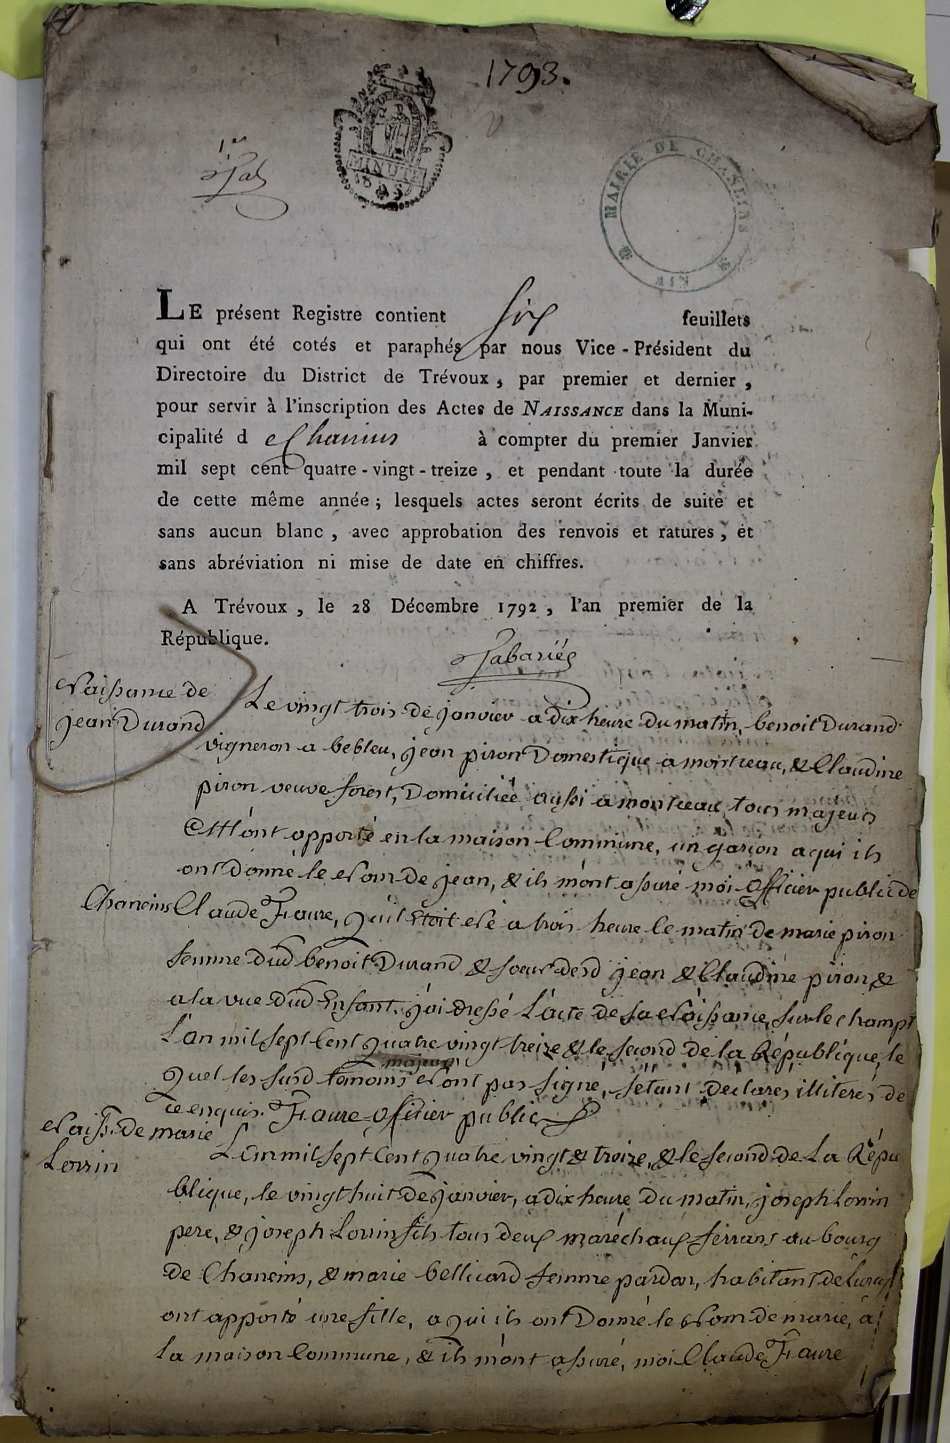 1793.
MINUTE
MAIRIE DE CHANEINS
AIN
LE présent Registre contient six feuillets
qui ont été cotés et paraphés par nous Vice-Président du
Directoire du District de Trévoux, par premier et dernier,
pour servir à l'inscription des Actes de NAISSANCE dans la Muni-
cipalité d e Chanins à compter du premier Janvier
mil sept cent quatre-vingt-treize, et pendant toute la durée
de cette même année; lesquels actes seront écrits de suite et
sans aucun blanc, avec approbation des renvois et ratures, et
sans abréviation ni mise de date en chiffres.
A Trévoux, le 28 Décembre 1792, l'an premier de la
République.
Naissance de
jean Durand
Le vingt trois de janvier a dix heure du matin, benoit Durand
vigneron a bebleu, jean piron Domestique a montceau, & Claudine
piron veuve forest, Domiciliée aussi a montceau tous majeurs
M'ont apporté en la maison Commune, un garçon a qui ils
ont donné le Nom de jean, & ils m'ont assuré moi Officier public de
Chaneins Claude Faure, qu'il étoit né a trois heure le matin de marie piron
femme dud benoit Durand & soeur desd jean & Claudine piron, &
a la vue dud Enfant, j'ai dressé L'acte de sa Naissance, sur le champt
L'an mil sept Cent quatre vingt treize & le second de la République, le
majeurs
quel les susd temoins N'ont pas signé, s'étant declarés illiterés de
ce enquis. Faure officier public
Naiss. de marie
Lorrin
L'an mil sept Cent quatre vingt & treize, & le second de La Répu
blique, le vingt huit de janvier, a dix heure du matin, joseph Lorrin
pere, & joseph Lorrin fils tous deux maréchaux ferrans au bourg
de Chaneins, & marie bellicard femme pardon, habitant de
ont apporté une fille, a qui ils ont Donné le Nom de marie, a
La maison Commune, & ils m'ont assuré, moi Claude Faure